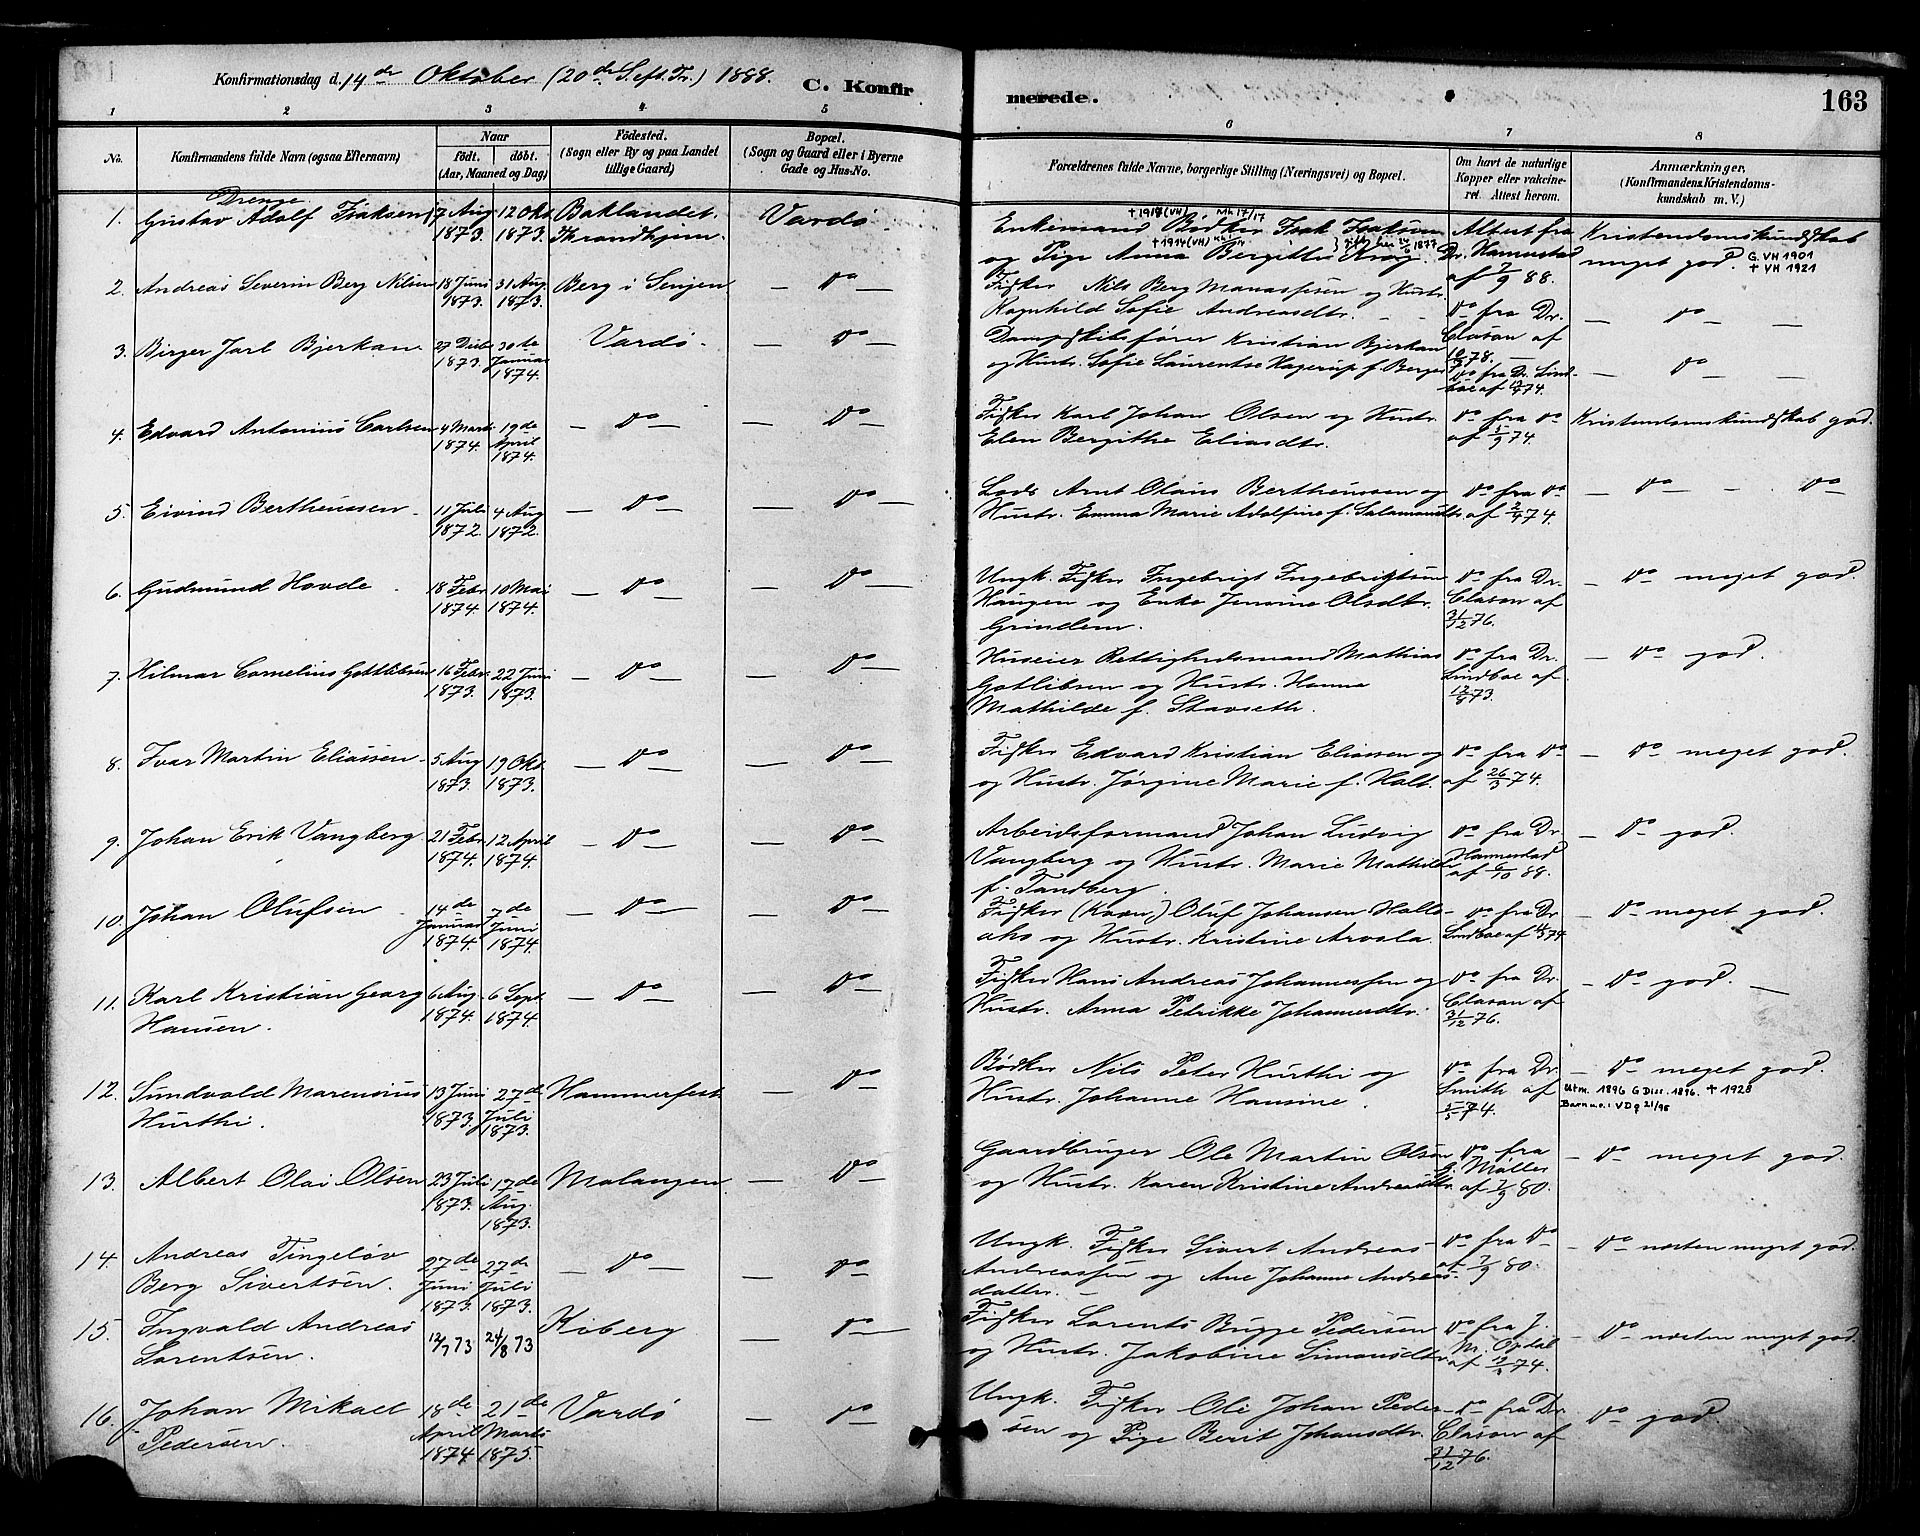 Konfirmationsdag d. 14de Oktober (20de S. eft. Tr.) 1888.
C. Konfirmerede.
163
1 2 3 4 5 6 7 8
No.
Konfirmandens fulde Navn (ogsaa Efternavn)
Naar
født. døbt.
(Aar, Maaned og Dag)
Fødested.
(Sogn eller By og paa Landet
tillige Gaard.)
Bopæl.
(Sogn og Gaard eller i Byerne
Gade og Hus-No.
Forældrenes fulde Navne, borgerlige Stilling (Næringsvei) og Bopæl.
Om havt de naturlige
Kopper eller vakcine-
ret. Attest herom.
Anmærkninger,
(Konfirmandens Kristendoms-
kundskab m. V.)
Drenge
1. Gustav Adolf Isaksen 7 Aug 1873. 12 Okt 1873. Baklandet. Throndhjem. Vardø
† 1917 (VH) Mh 17/17
Enkemand Bødker Isak Isaksen
† 1914 (VH)
og Pige Anna Bergitte Krog.
Attest fra Dr. Hannestad af 7/9 88.
Kristendomskundskab meget god. G. VH 1901 † VH 1921
2. Andreas Severin Berg Nilsen 18 Juni 1873. 31 Aug 1873. Berg i Senjen — Do —
Fisker Nils Berg Manassesen og Hustr.
Ragnhild Sofie Andreasdtr.
Do fra Dr. Clason af 78.
— Do —
3. Birger Jarl Bjerkan 27 Dcbr 1873. 30te Januar 1874. Vardø. — Do —
Dampskibsfører Kristian Bjerkan
og Hustr. Sofie Laurentse Hagerup f. Berger
Do fra Dr. Lindboe af 74.
— Do —
4. Edvard Antonius Carlsen 4 Marts 1874. 19de April 1874. — Do — — Do —
Fisker Karl Johan Olsen og Hustr.
Elen Bergithe Eliasdtr.
Do fra Do af 5/9 74.
Kristendomskundskab god.
5. Eivind Bertheussen 11 Juli 1872. 4 Aug 1872. — Do — — Do —
Lods Arnt Olaus Bertheussen og
Hustr. Emma Marie Adolfine f. Salamonsdtr
Do fra Do af 2/9 74.
— Do — Do
6. Gudmund Hovde 18 Febr 1874. 10 Mai 1874. — Do — — Do —
Ungk. Fisker Ingebrigt Ingebrigtsen
Haugen og Enke Jensine Olsdtr.
Grindem.
Do fra Dr. Clason af 31/12 76.
— Do meget god.
7. Hilmar Cornelius Gottlibsen 16 Febr. 1873. 22 Juni 1873. — Do — — Do —
Huseier Rettighedsmand Mathias
Gotlibsen og Hustr. Hanna
Mathilde f. Stavseth.
Do fra Dr. Lindboe af 73.
— Do god.
8. Ivar Martin Eliassen 5 Aug 1873. 19 Okt. 1873. — Do — — Do —
Fisker Edvard Kristian Eliassen og
og Hustr. Jørgine Marie f. Holt.
Do fra Do af 26/3 74.
— Do meget god.
9. Johan Erik Vangberg. 21 Febr. 1874. 12 April 1874. — Do — — Do —
Arbeidsformand Johan Ludvig
Vangberg og Hustr. Marie Mathilde
f. Tandberg.
Do fra Dr Hannestad af 6/10 88.
— Do god.
10. Johan Olufsen 14de Januar 1874. 7de Juni 1874. — Do — — Do —
Fisker (Kvæn) Oluf Johansen Halle-
aho og Hustr. Kristine Arvola.
Do fra Dr Lindboe af 74
— Do meget god.
11. Karl Kristian Georg Hansen. 6 Aug. 1874. 6 Sept. 1874. — Do — — Do —
Fisker Hans Andreas Johannessen og
Hustr. Anna Petrikke Johannesdtr.
Do fra Dr. Clason af 31/12 76.
— Do god. —
12. Sundvald Marensius Hurthi. 13 Juni 1873. 27de Juli 1873. Hammerfest — Do
Bødker Nils Peter Hurthi og
Hustr. Johanne Hansine.
Do fra Dr Smith af 5/5 74.
— Do meget god.
Utm. 1896 G Diss. 1896. † 1928
Barn u.e. i VDg 21/95
13. Albert Olai Olsen 23 Juli 1873. 17de Aug. 1873. Malangen — Do
Gaardbruger Ole Martin Olsen
og Hustr. Karen Kristine Andreasdtr.
Do fra J. Møller af 7/9 80.
— Do meget god.
14. Andreas Tingeløv Berg Sivertsen. 27de Juni 1873. 27de Juli 1873. — Do — — Do
Ungk. Fisker Sivert Andreas
Andreassen og Ane Johanne Andreas-
datter. —
Do fra Do af 7/9 80.
— Do næsten meget god.
15. Ingvald Andreas Lorentsen. 12/7 73 24/8 73 Kiberg — Do —
Fisker Lorents Bugge Pedersen
og Hustr. Jakobine Simonsdtr.
Do fra J. M. Opdal af 74.
— Do næsten meget god.
16. Johan Mikael Pedersen. 18de April 1874 21de Marts 1875. Vardø — Do —
Ungk. Fisker Ole Johan Peder-
sen og Pige Berit Johansdtr.
Do fra Dr. Clason af 31/12 76.
Do god.